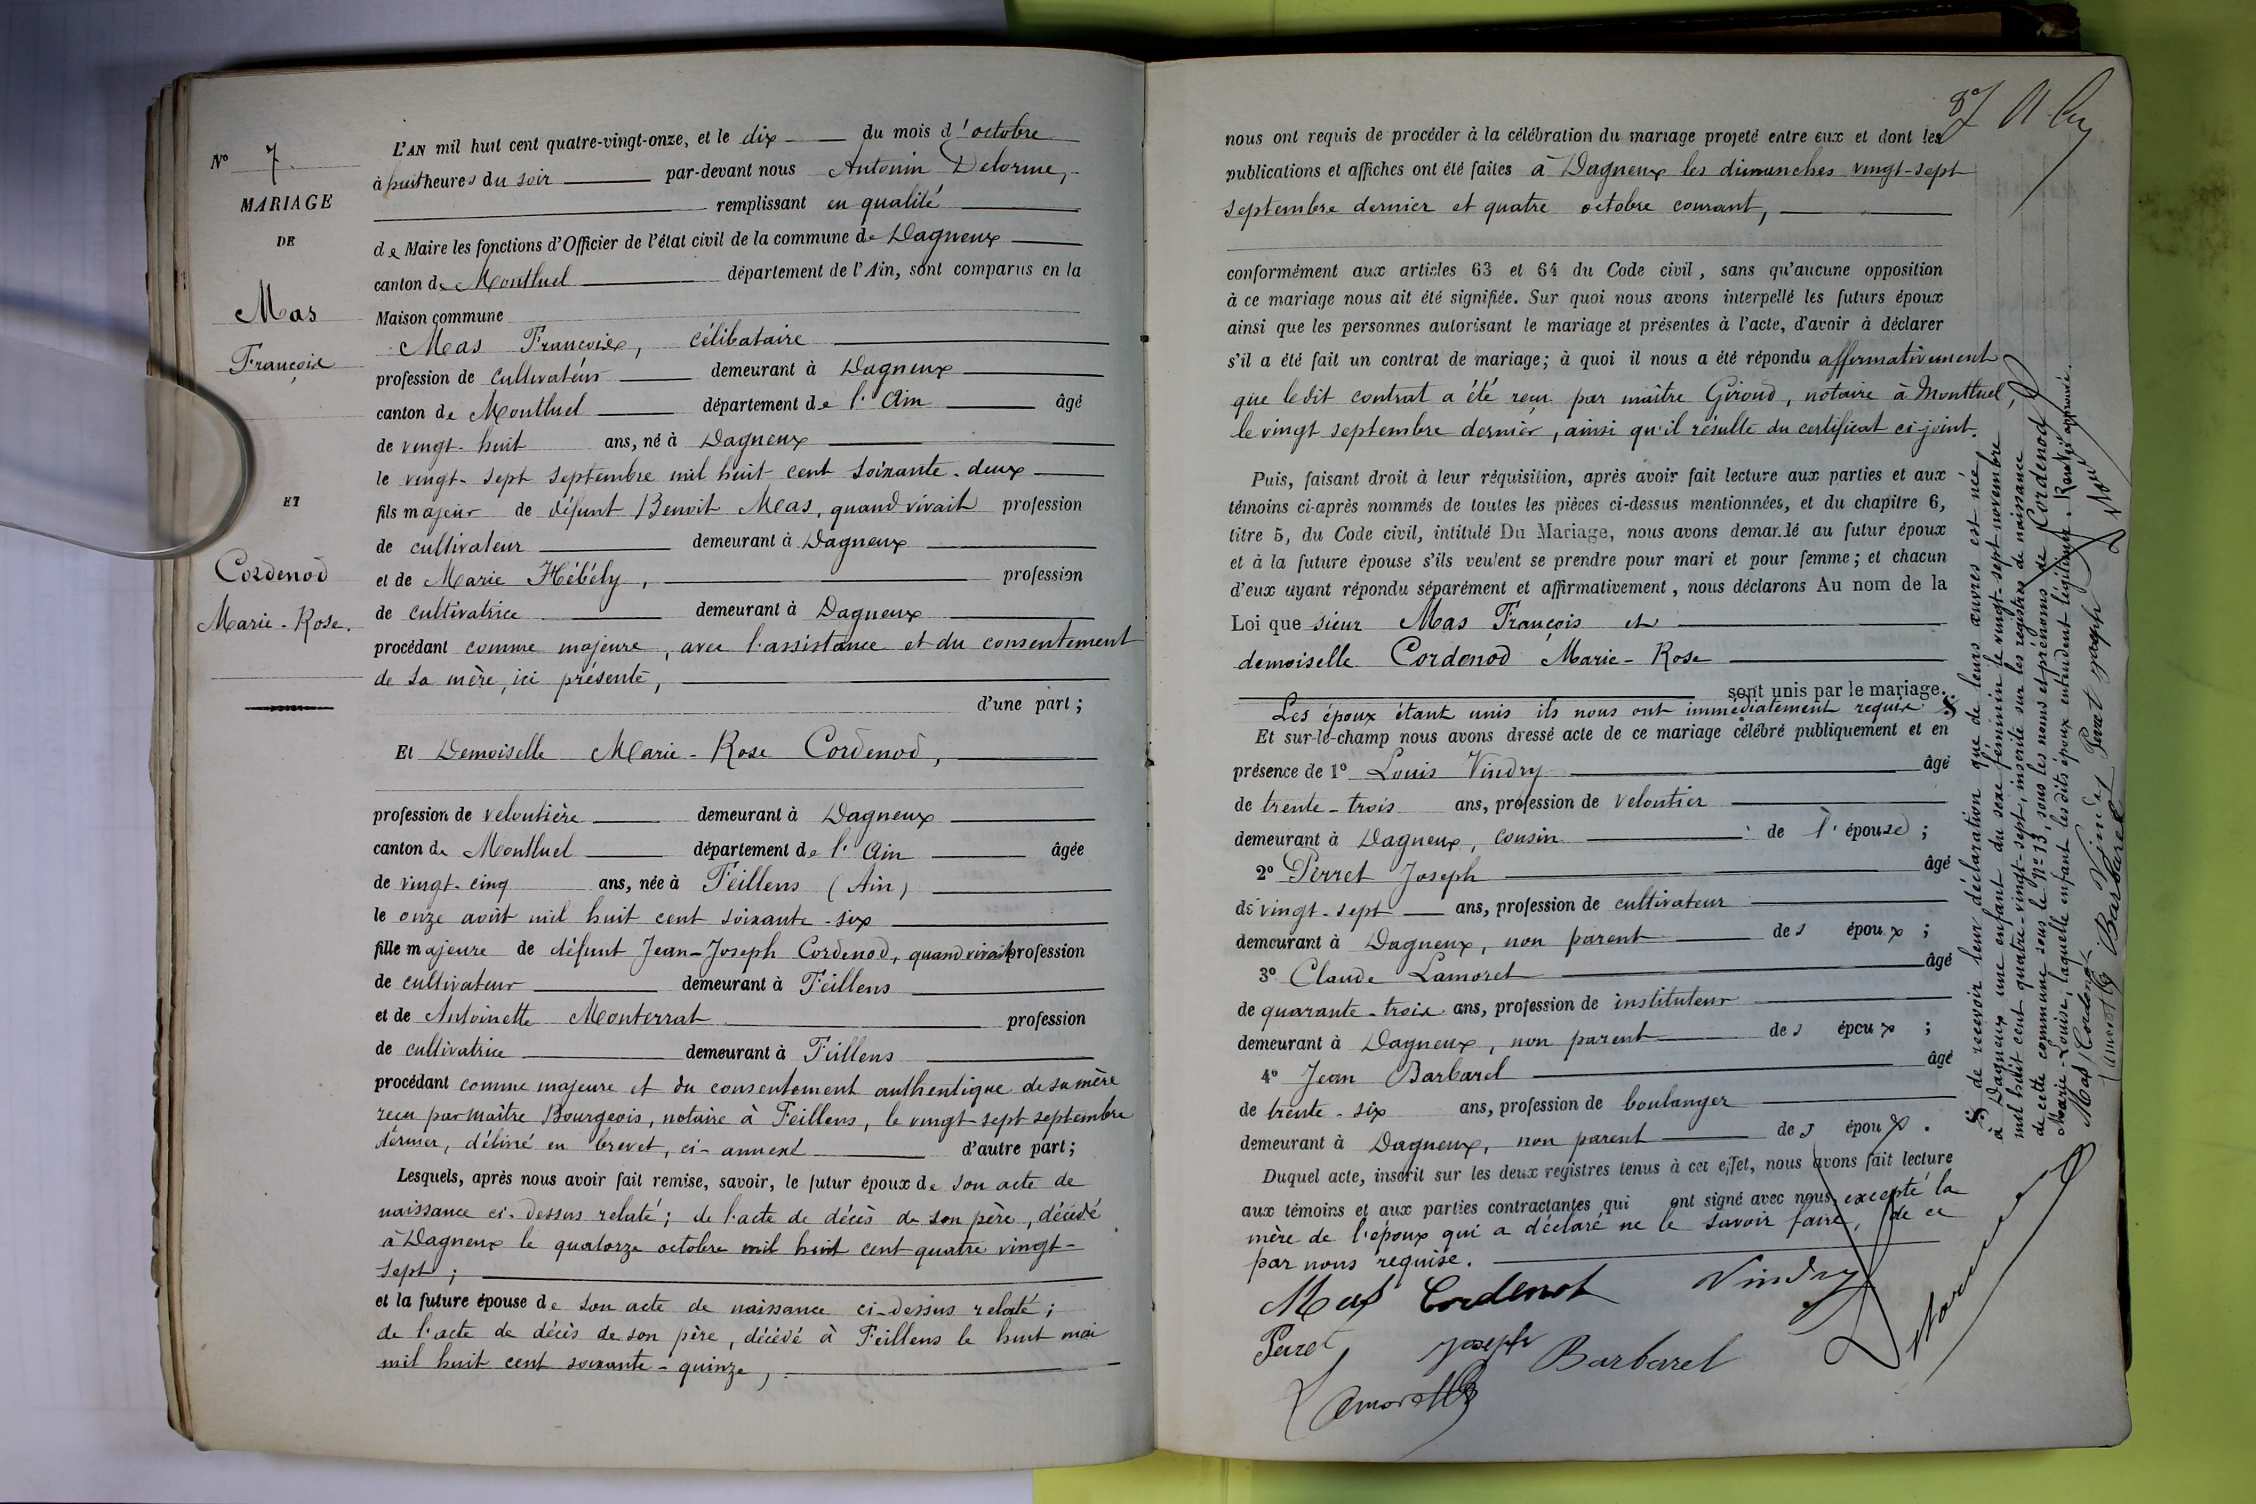 N° 7.
MARIAGE
DE
Mas
François
ET
Cordenod
Marie-Rose.
L'AN mil huit cent quatre-vingt-onze, et le dix du mois d'octobre
à huit heures du soir par-devant nous Antonin Delorme,
remplissant en qualité
de Maire les fonctions d'Officier de l'état civil de la commune de Dagneux
canton de Montluel département de l'Ain, sont comparus en la
Maison commune
Mas François, célibataire
profession de cultivateur demeurant à Dagneux
canton de Montluel département de l'Ain âgé
de vingt-huit ans, né à Dagneux
le vingt-sept septembre mil huit cent soixante-deux
fils majeur de défunt Benoit Mas, quand vivait profession
de cultivateur demeurant à Dagneux
et de Marie Hébély, profession
de cultivatrice demeurant à Dagneux
procédant comme majeure, avec l'assistance et du consentement
de sa mère, ici présente,
d'une part;
Et Demoiselle Marie-Rose Cordenod,
profession de veloutière demeurant à Dagneux
canton de Montluel département de l'Ain âgée
de vingt-cinq ans, née à Feillens (Ain)
le onze août mil huit cent soixante-six
fille majeure de défunt Jean-Joseph Cordenod, quand vivait profession
de cultivateur demeurant à Feillens
et de Antoinette Monterrat profession
de cultivatrice demeurant à Feillens
procédant comme majeure et du consentement authentique de sa mère
reçu par maître Bourgeois, notaire à Feillens, le vingt-sept septembre
dernier, délivré en brevet, ci-annexé d'autre part;
Lesquels, après nous avoir fait remise, savoir, le futur époux de son acte de
naissance ci-dessus relaté; de l'acte de décès de son père, décédé
à Dagneux le quatorze octobre mil huit cent quatre vingt-
sept;
et la future épouse de son acte de naissance ci-dessus relaté;
de l'acte de décès de son père, décédé à Feillens le huit mai
mil huit cent soixante-quinze,
87
nous ont requis de procéder à la célébration du mariage projeté entre eux et dont les
publications et affiches ont été faites à Dagneux les dimanches vingt-sept
septembre dernier et quatre octobre courant,
conformément aux articles 63 et 64 du Code civil, sans qu'aucune opposition
à ce mariage nous ait été signifiée. Sur quoi nous avons interpellé les futurs époux
ainsi que les personnes autorisant le mariage et présentes à l'acte, d'avoir à déclarer
s'il a été fait un contrat de mariage; à quoi il nous a été répondu affirmativement
que ledit contrat a été reçu par maître Giroud, notaire à Montluel,
le vingt septembre dernier, ainsi qu'il résulte du certificat ci-joint.
Puis, faisant droit à leur réquisition, après avoir fait lecture aux parties et aux
témoins ci-après nommés de toutes les pièces ci-dessus mentionnées, et du chapitre 6,
titre 5, du Code civil, intitulé Du Mariage, nous avons demandé au futur époux
et à la future épouse s'ils veulent se prendre pour mari et pour femme; et chacun
d'eux ayant répondu séparément et affirmativement, nous déclarons Au nom de la
Loi que sieur Mas François et
demoiselle Cordenod Marie-Rose
sont unis par le mariage.
Les époux étant unis ils nous ont immédiatement requis §
Et sur-le-champ nous avons dressé acte de ce mariage célébré publiquement et en
présence de 1° Louis Vindry âgé
de trente-trois ans, profession de veloutier
demeurant à Dagneux, cousin de l'épouse;
2° Perret Joseph âgé
de vingt-sept ans, profession de cultivateur
demeurant à Dagneux, non parent des époux;
3° Claude Lamoret âgé
de quarante-trois ans, profession de instituteur
demeurant à Dagneux, non parent des époux;
4° Jean Barbarel âgé
de trente-six ans, profession de boulanger
demeurant à Dagneux, non parent des époux.
Duquel acte, inscrit sur les deux registres tenus à cet effet, nous avons fait lecture
aux témoins et aux parties contractantes qui ont signé avec nous, excepté la
mère de l'époux qui a déclaré ne le savoir faire, de ce
par nous requise.
Mas Cordenot Vindry
Peret Joseph Barbarel
Lamoret
§ de recevoir leur déclaration que de leurs œuvres est née
à Dagneux une enfant du sexe féminin le vingt-sept novembre
mil huit cent quatre-vingt-sept, inscrite sur les registres de naissance
de cette commune sous le N° 13, sous les noms et prénoms de Cordenod
Marie-Louise, laquelle enfant les dits époux entendent légitimer. Renvoi approuvé.
Mas Cordenot Vindry Perret Joseph
Lamoret Barbarel